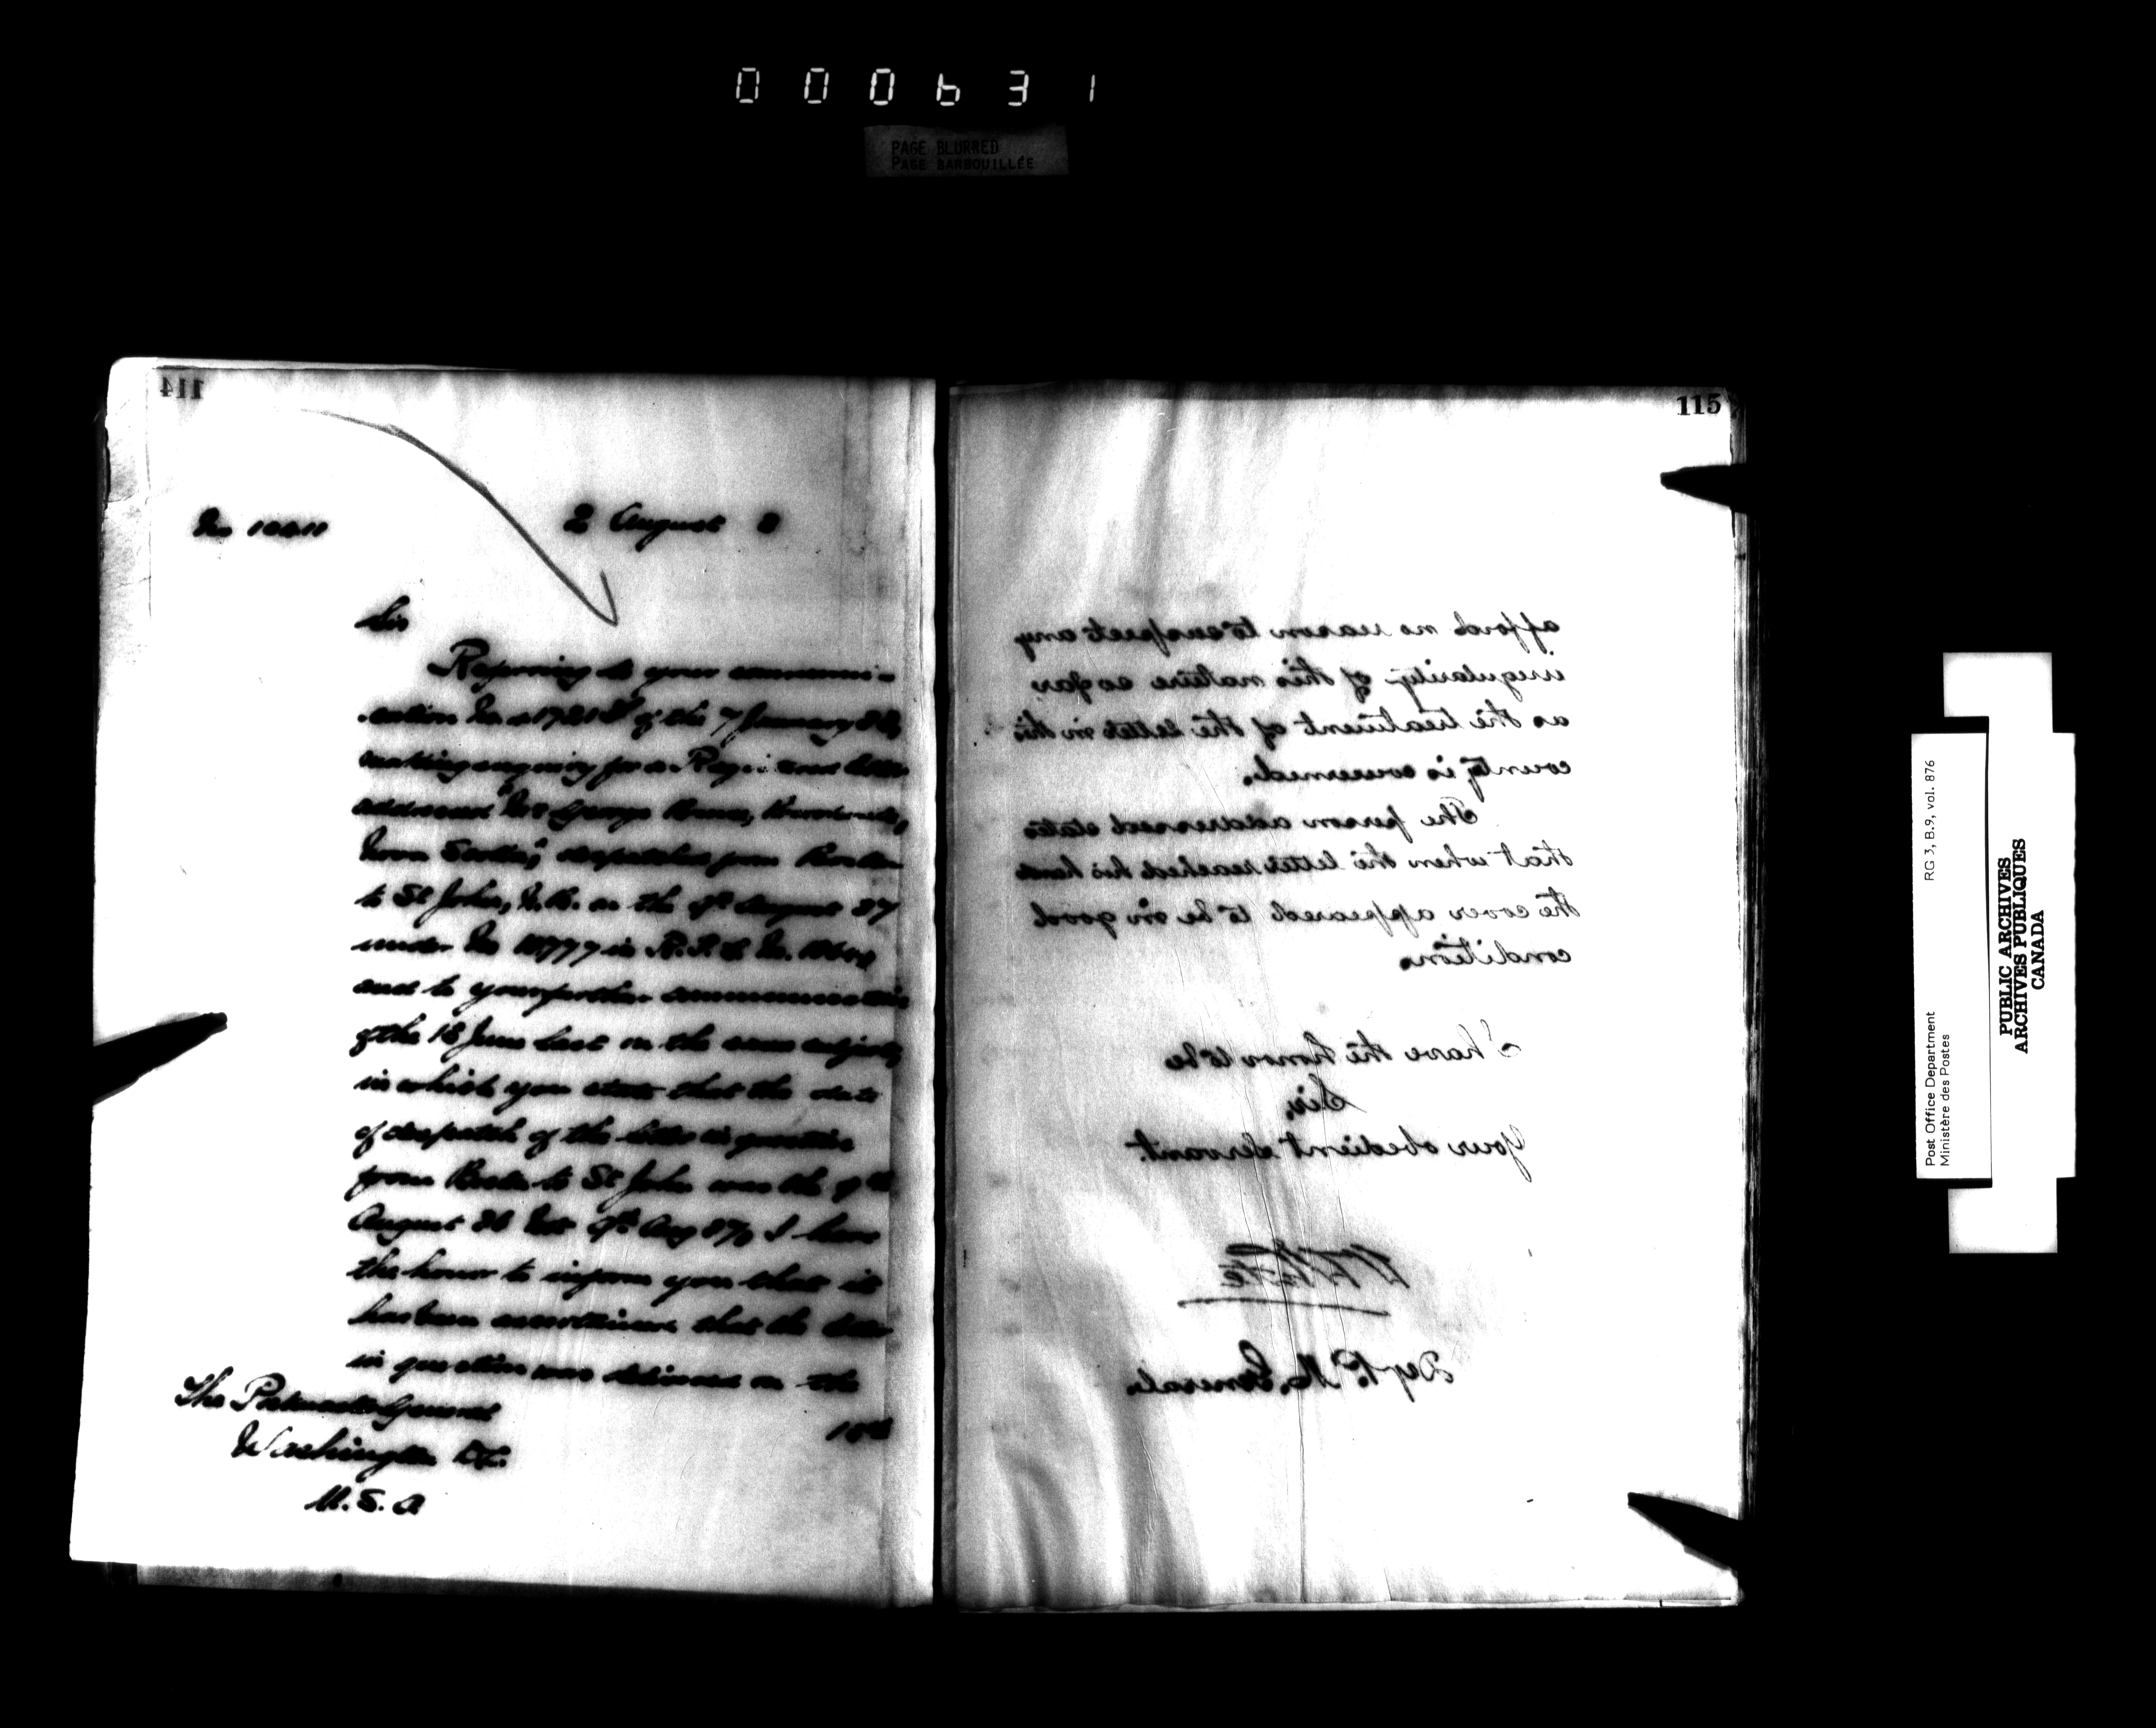 000631
PAGE BLURRED
PAGE BARBOUILLÉE
114
No 10411
2 August 8
Sir
Referring to your communi-
cation No 1721 of the 7 January 88,
making enquiry for a letter
addressed Mr George
Nova Scotia, despatched from Boston
to St John, N.B. on the 9th August 87
under No 18777 in R.P.E. No.
and to your further communication
of the 18 June last on the same subject,
in which you state that the date
of despatch of the letter in question
from Boston to St John was the 9th
August 86 not 9th Aug 87, I have
the honor to inform you that it
has been ascertained that the letter
in question was delivered on the
The Postmaster General
Washington D.C.
U.S.A
115
affords no reason to suspect any
irregularity of this nature so far
as the treatment of the letter in this
county is concerned.
The person addressed states
that when the letter reached his hands
the cover appeared to be in good
condition.
I have the honor to be
Sir,
Your obedient servant.
Dep P. M. General.
Post Office Department
Ministère des Postes
RG 3, B.9, vol. 876
PUBLIC ARCHIVES
ARCHIVES PUBLIQUES
CANADA